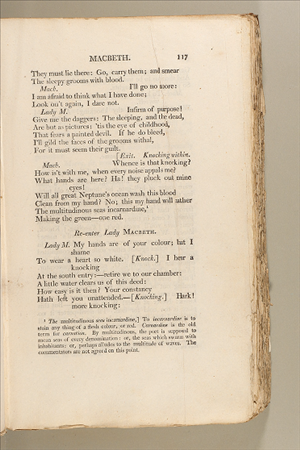 MACBETH. 117
They must lie there: Go, carry them; and smear
The sleepy grooms with blood.
Macb. I'll go no more:
I am afraid to think what I have done;
Look on't again, I dare not.
Lady M. Infirm of purpose!
Give me the daggers: The sleeping, and the dead,
Are but as pictures: 'tis the eye of childhood,
That fears a painted devil. If he do bleed,
I'll gild the faces of the grooms withal,
For it must seem their guilt.
[Exit. Knocking within.
Macb. Whence is that knocking?
How is't with me, when every noise appals me?
What hands are here? Ha! they pluck out mine
eyes!
Will all great Neptune's ocean wash this blood
Clean from my hand? No; this my hand will rather
The multitudinous seas incarnardine,
Making the green—one red.
Re-enter Lady MACBETH.
Lady M. My hands are of your colour; but I
shame
To wear a heart so white. [Knock.] I hear a
knocking
At the south entry:—retire we to our chamber:
A little water clears us of this deed:
How easy is it then? Your constancy
Hath left you unattended.—[Knocking.] Hark!
more knocking:
The multitudinous seas incarnardine,] To incarnardine is to
stain any thing of a flesh colour, or red. Carnardine is the old
term for carnation. By multitudinous, the poet is supposed to
mean seas of every denomination: or, the seas which swarm with
inhabitants; or, perhaps alludes to the multitude of waves. The
commentators are not agreed on this point.